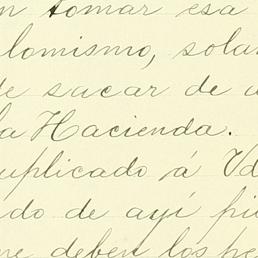 n tomar esa
lomismo, sola
de sacar de
la Hacienda.
uplicado á Vd
do de ayí pi
ue deben los pe